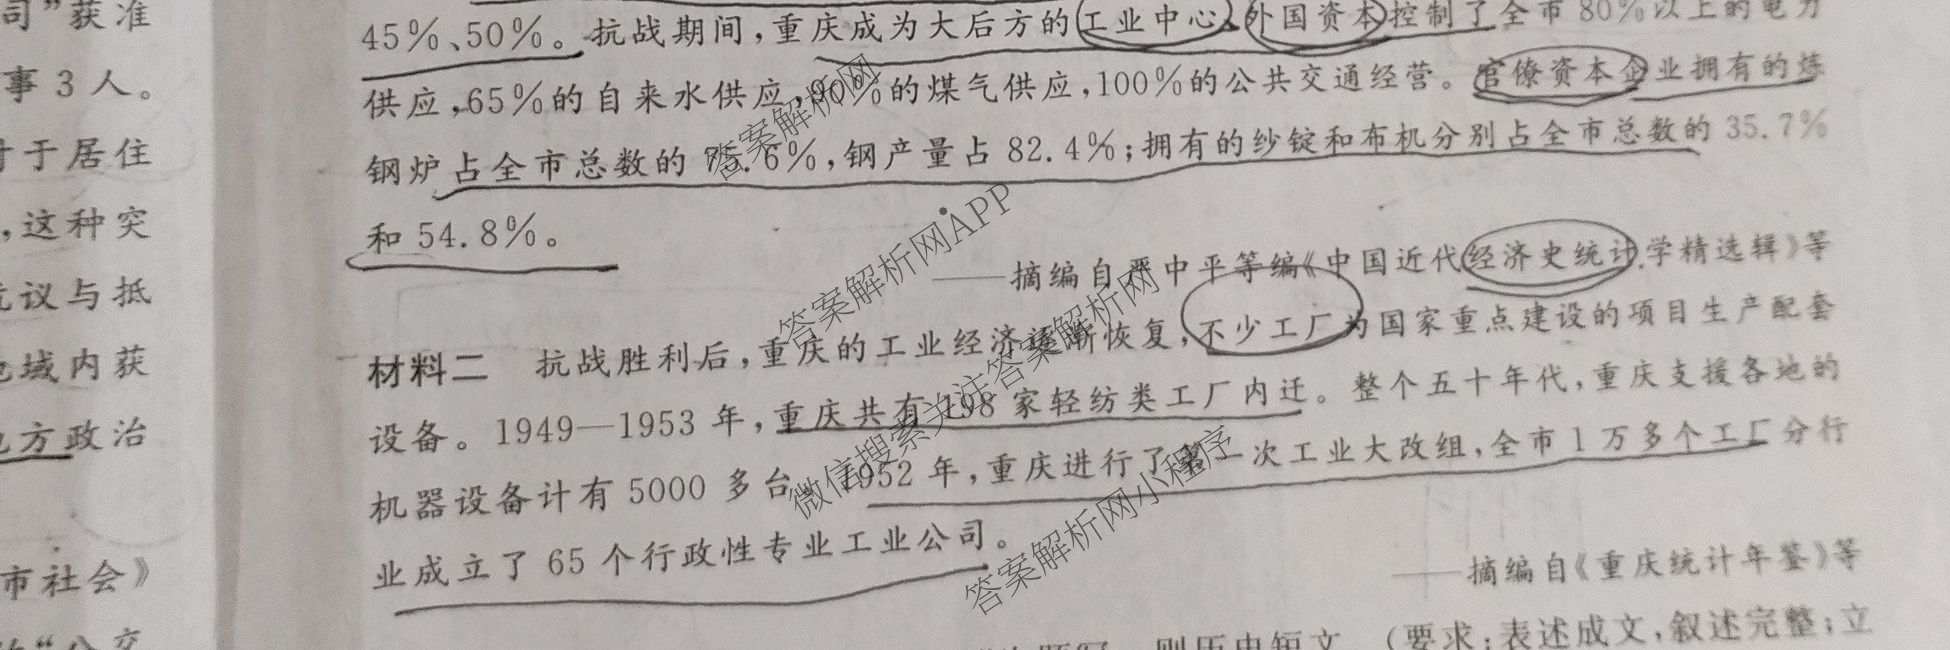 司”获准
事3人。
于居住
,这种突
议与抵
地域内获
方政治
市社会》
45%、50%。抗战期间,重庆成为大后方的工业中心,外国资本控制了全市80%以上的电力
供应,65%的自来水供应,90%的煤气供应,100%的公共交通经营。官僚资本企业拥有的炼
钢炉占全市总数的75.6%,钢产量占82.4%;拥有的纱锭和布机分别占全市总数的35.7%
和54.8%。
——摘编自严中平等编《中国近代经济史统计学精选辑》等
材料二 抗战胜利后,重庆的工业经济逐渐恢复,不少工厂为国家重点建设的项目生产配套
设备。1949—1953年,重庆共有198家轻纺类工厂内迁。整个五十年代,重庆支援各地的
机器设备计有5000多台。1952年,重庆进行了第一次工业大改组,全市1万多个工厂分行
业成立了65个行政性专业工业公司。
——摘编自《重庆统计年鉴》等
历史短文。(要求:表述成文,叙述完整;立
答案解析网
答案解析网APP
微信搜索关注答案解析网
答案解析网小程序